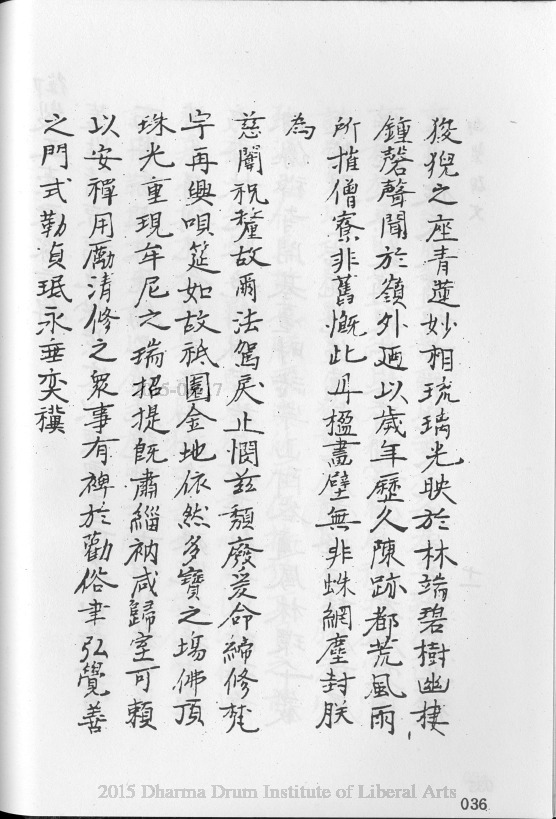 狻猊之座青蓮妙相琉璃光映於林端碧樹幽棲
鍾磬聲聞於嶺外迺以歲年歷久陳跡都荒風雨
所摧僧寮非舊慨此丹楹畫壁無非蛛網塵封朕
為
慈闈祝釐故爾法駕戾止憫茲頹廢爰命締修梵
宇再興唄筵如故祇園金地依然多寶之場佛頂
珠光重現牟尼之瑞招提既肅緇衲咸歸室可賴
以安禪用勵清修之眾事有裨於勸俗聿弘覺善
之門式勒貞珉永垂奕禩
2015 Dharma Drum Institute of Liberal Arts
036